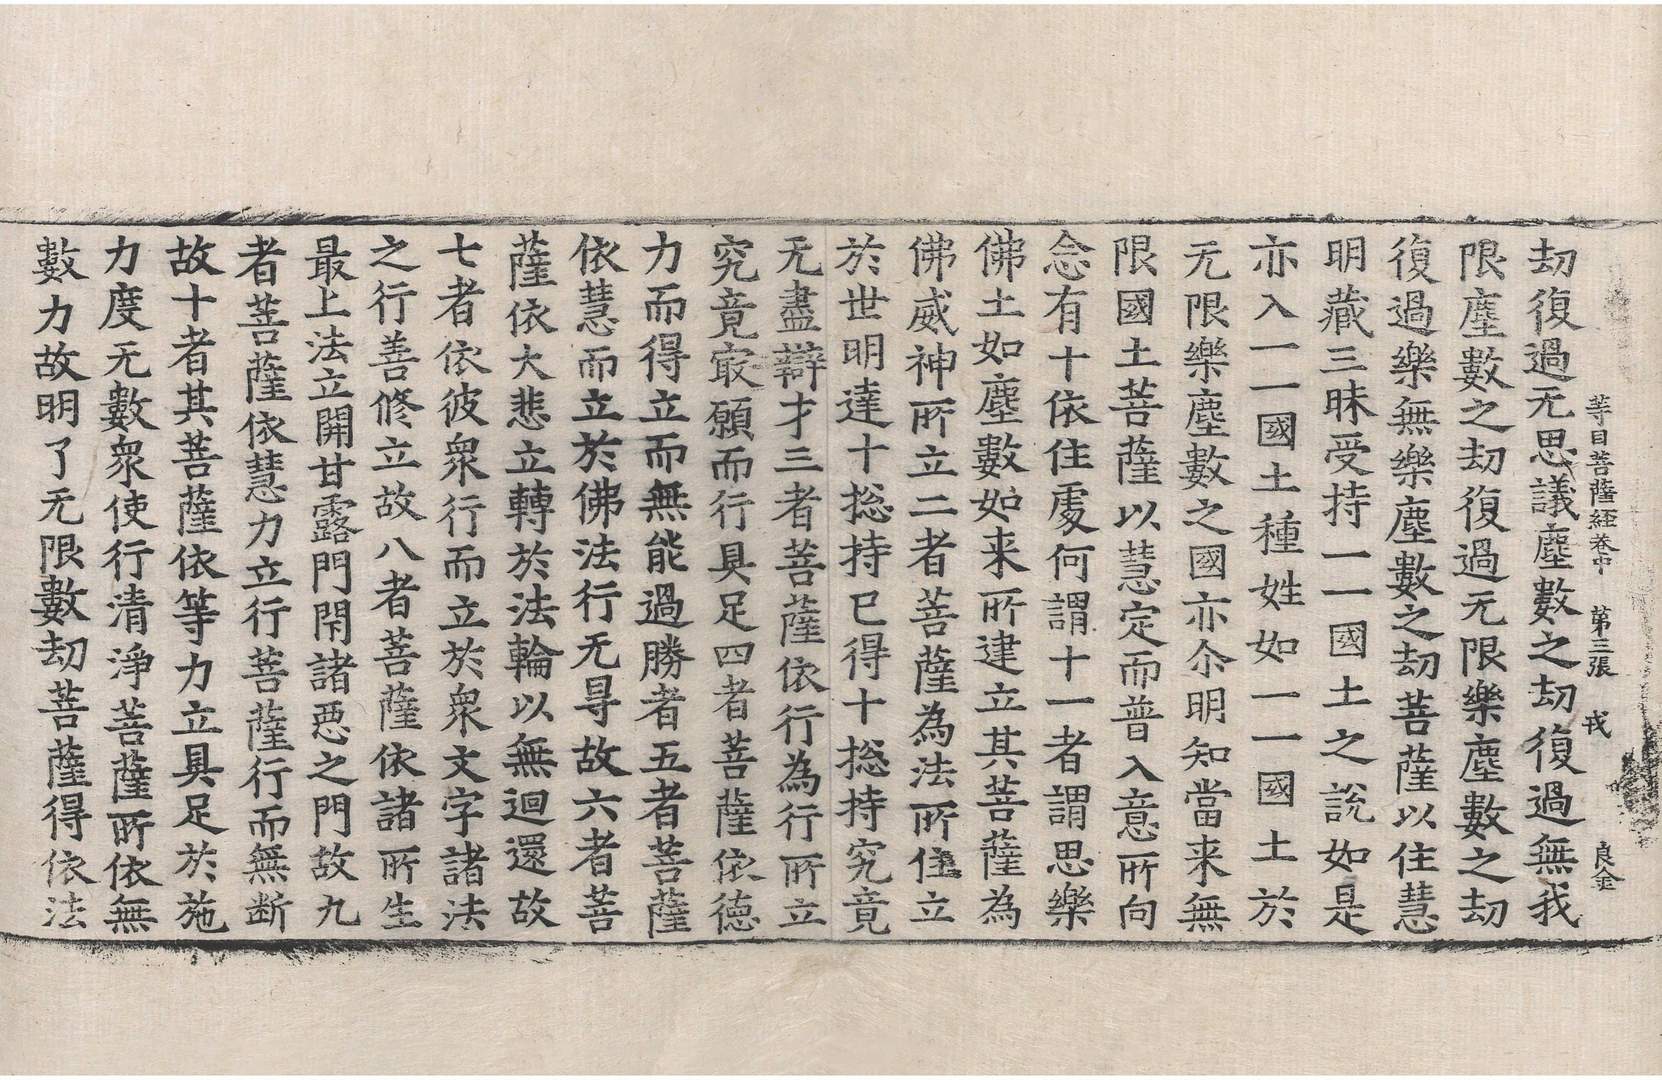 等目菩薩経卷中　第三張　戎　良金
劫復過无思議塵數之劫復過無我
限塵數之劫復過无限樂塵數之劫
復過樂無樂塵數之劫菩薩以住慧
明藏三昧受持一一國土之說如是
亦入一一國土種姓如一一國土於
无限樂塵數之國亦尒明知當来無
限國土菩薩以慧定而普入意所向
念有十依住處何謂十一者謂思樂
佛土如塵數如来所建立其菩薩為
佛威神所立二者菩薩為法所住立
於世明達十捴持已得十捴持究竟
无盡辯才三者菩薩依行為行所立
究竟㝡願而行具足四者菩薩依德
力而得立而無能過勝者五者菩薩
依慧而立於佛法行无㝵故六者菩
薩依大悲立轉於法輪以無迴還故
七者依彼衆行而立於衆文字諸法
之行善修立故八者菩薩依諸所生
最上法立開甘露門閇諸惡之門故九
者菩薩依慧力立行菩薩行而無断
故十者其菩薩依等力立具足於施
力度无數衆使行清淨菩薩所依無
數力故明了无限數劫菩薩得依法